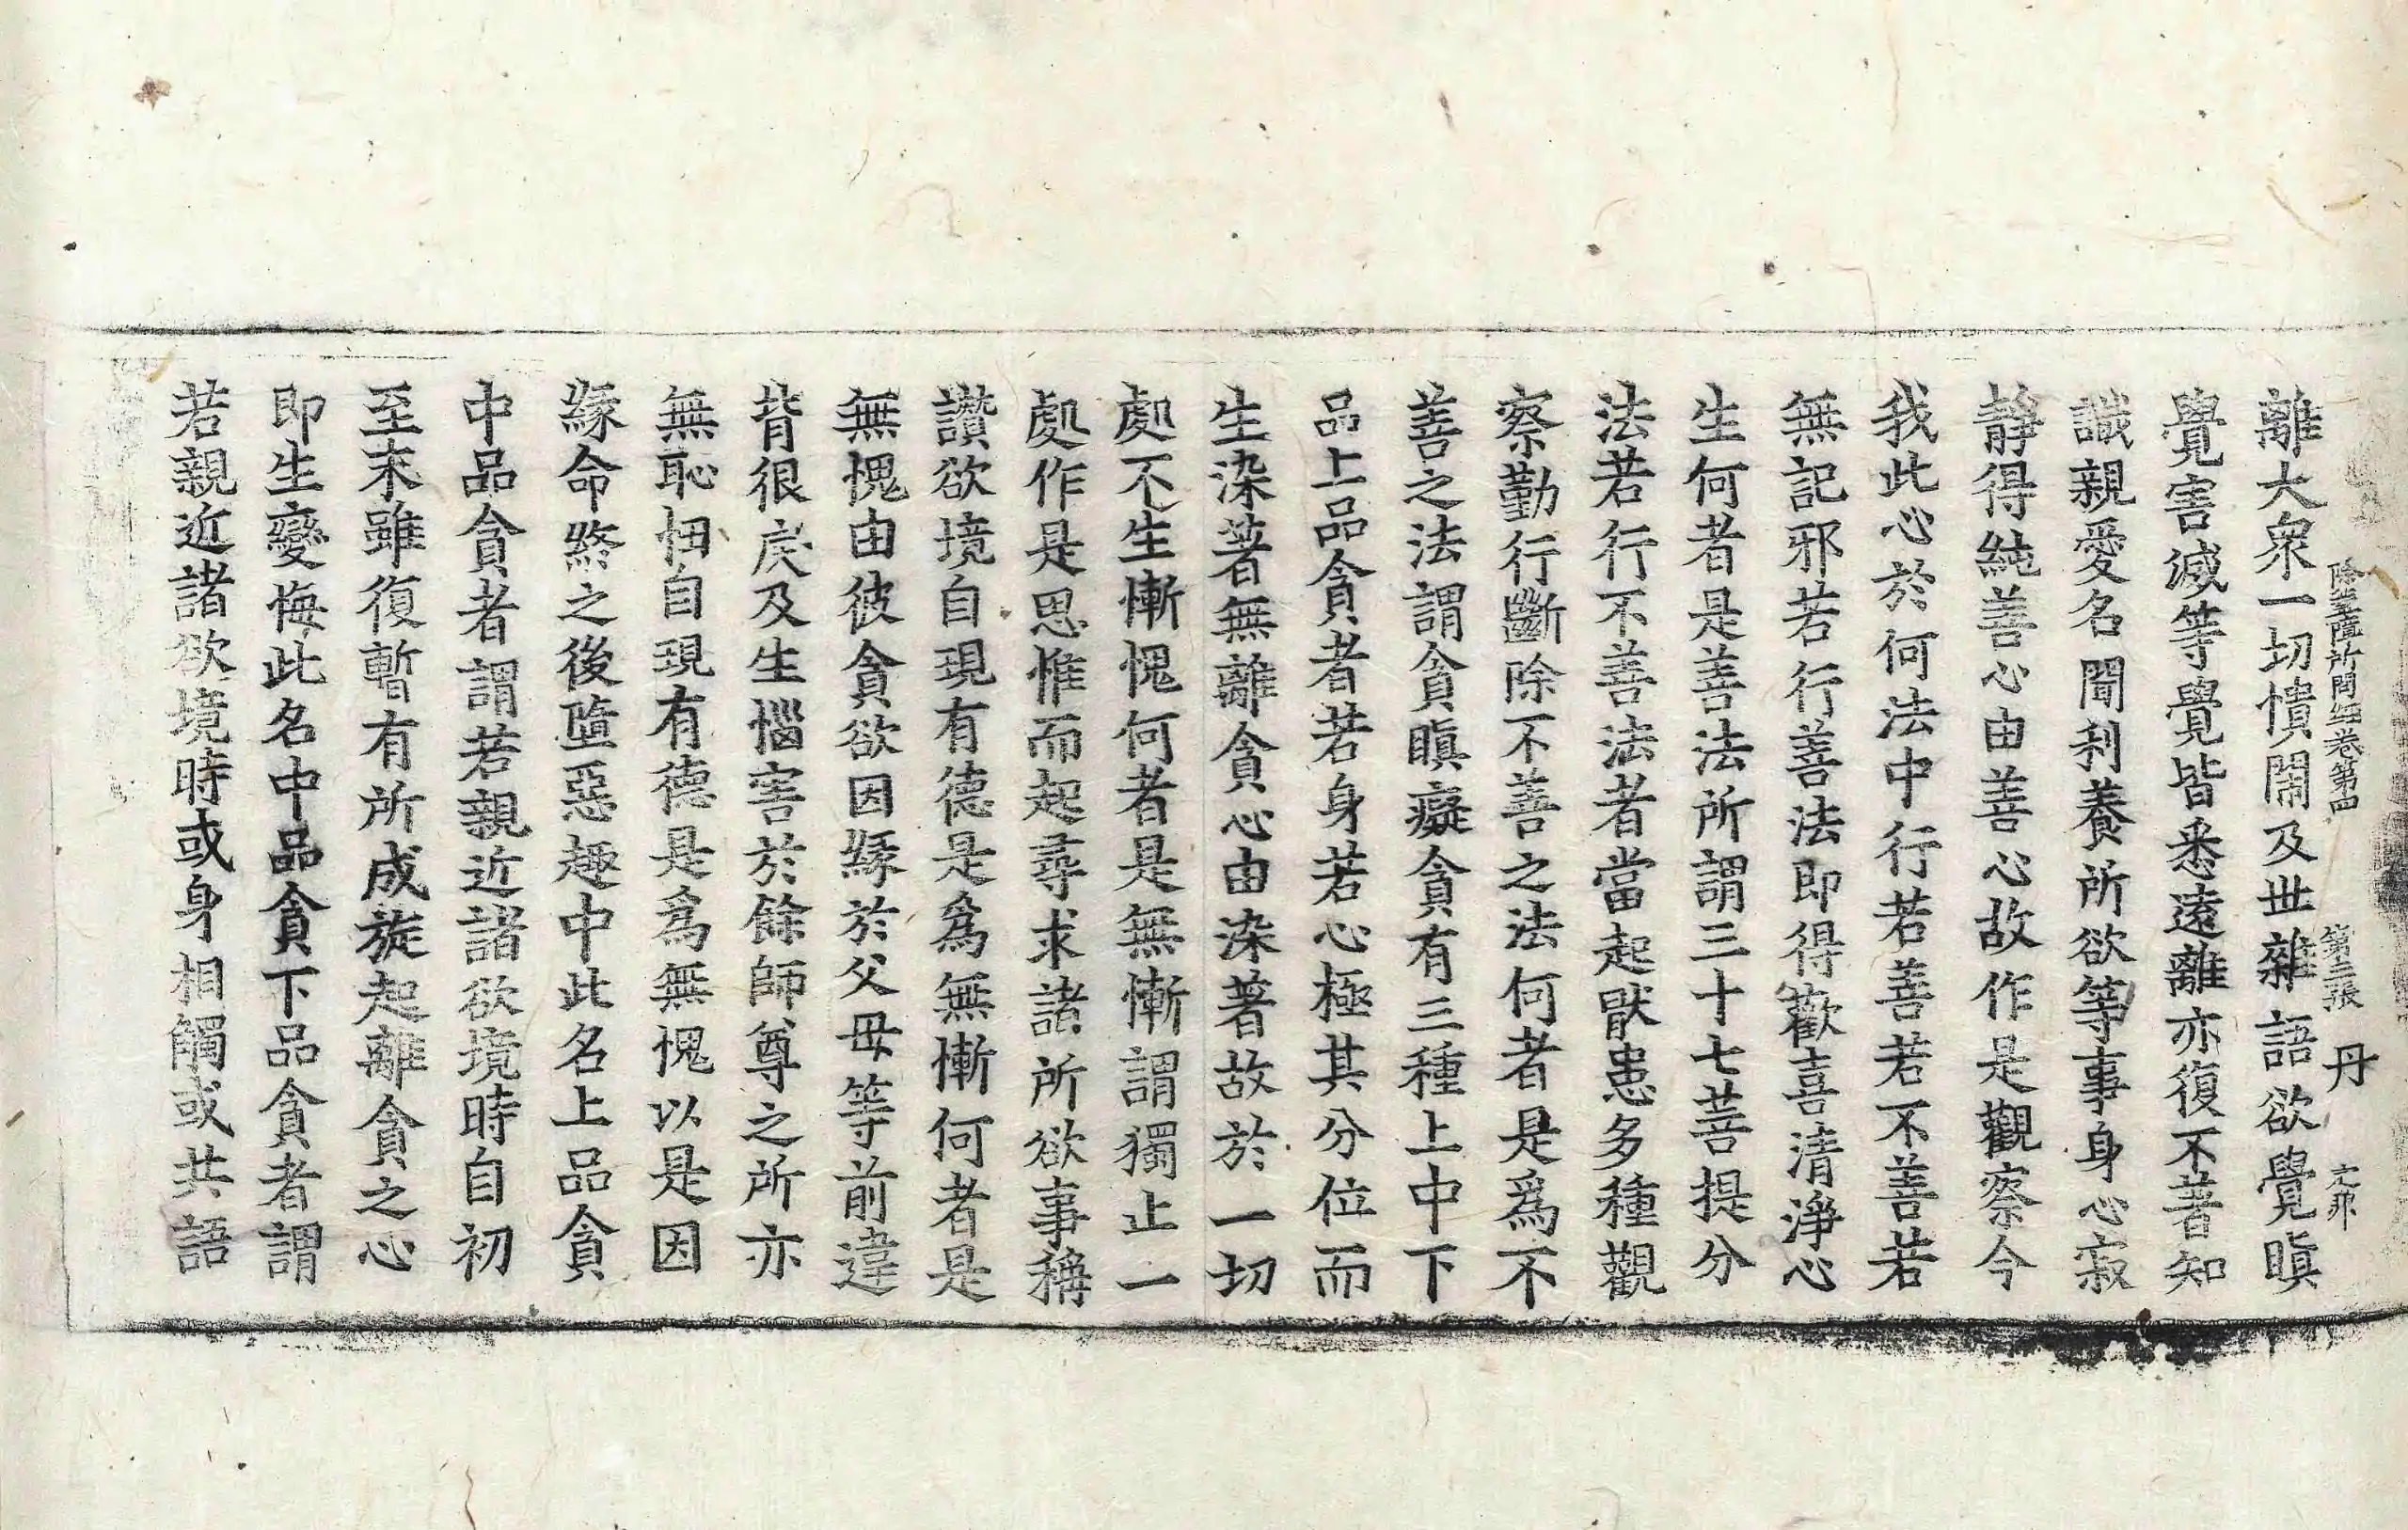 除蓋障所問經卷第四 第三張 丹
離大衆一切憒閙及世雜語欲覺瞋
覺害滅等覺皆悉遠離亦復不著知
識親愛名聞利養所欲等事身心寂
靜得純善心由善心故作是觀察今
我此心於何法中行若善若不善若
無記邪若行善法即得歡喜清淨心
生何者是善法所謂三十七菩提分
法若行不善法者當起猒患多種觀
察勤行斷除不善之法何者是爲不
善之法謂貪瞋癡貪有三種上中下
品上品貪者若身若心極其分位而
生染著無離貪心由染著故於一切
處不生慚愧何者是無慚謂獨止一
處作是思惟而起尋求諸所欲事稱
讚欲境自現有德是爲無慚何者是
無愧由彼貪欲因緣於父母等前違
背很戾及生惱害於餘師尊之所亦
無恥怛自現有德是爲無愧以是因
緣命終之後墮惡趣中此名上品貪
中品貪者謂若親近諸欲境時自初
至末雖復暫有所成旋起離貪之心
即生變悔此名中品貪下品貪者謂
若親近諸欲境時或身相觸或共語